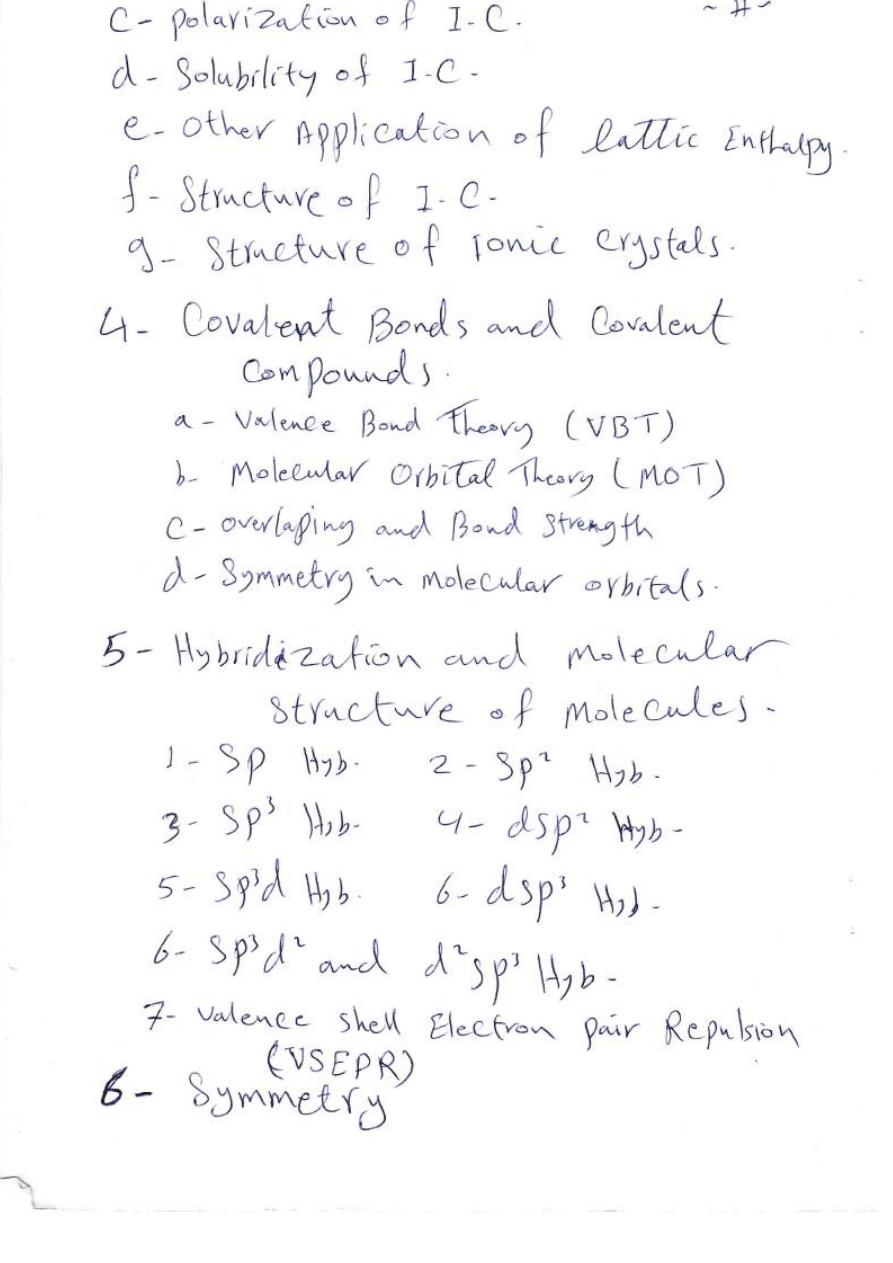 ~ # ~
C- polarization of I.C.
d- Solubility of I.C-
e- Other Application of lattic Enthalpy.
f- Structure of I.C-
g- Structure of ionic crystals.
4- Covalent Bonds and Covalent
Compounds.
a- Valence Bond Theory (VBT)
b- Molecular Orbital Theory (MOT)
C- overlaping and Bond Strength
d- Symmetry in molecular orbitals.
5- Hybridization and Molecular
Structure of Molecules-
1- Sp Hyb. 2- Sp² Hyb.
3- Sp³ Hyb- 4- dsp² Hyb-
5- Sp³d Hyb. 6- dsp³ Hyb-
6- Sp³d² and d²sp³ Hyb-
7- Valence shell Electron pair Repulsion
(VSEPR)
6- Symmetry